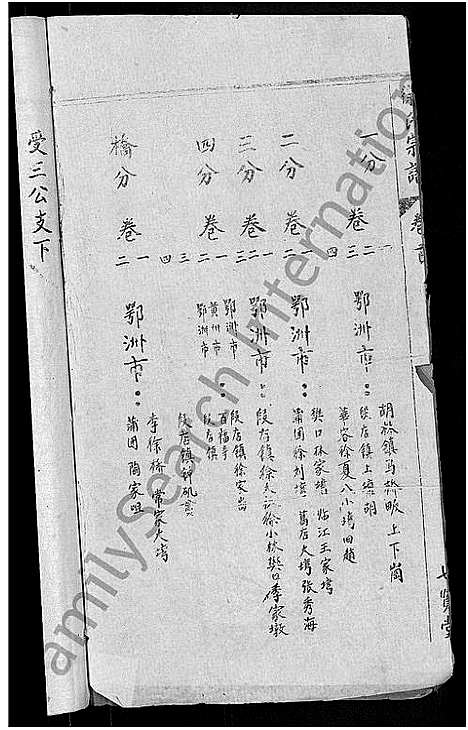 徐氏宗譜 卷首
七賢堂
一分 卷 一 二 三 四
鄂洲市：
胡林鎮馬橋畈 上下崗
段店鎮上塆胡
華容徐夏八小塆回趙
二分 卷 一 二
鄂洲市：
樊口林家塆 臨江王家塆
蒲团徐刘塆 葛店大塆張秀海
三分 卷 一 二 三
鄂洲市：
段店鎮徐 徐小林樊口李家墩
四分 卷 一 二 三 四
鄂洲市：段店鎮徐家
黄州市：百福寺
鄂洲市 段店鎮
段店鎮
橋分 卷 一 二
鄂洲市：
李徐橋 常家大塆
蒲团 陶家咀
受三公支下
FamilySearch International